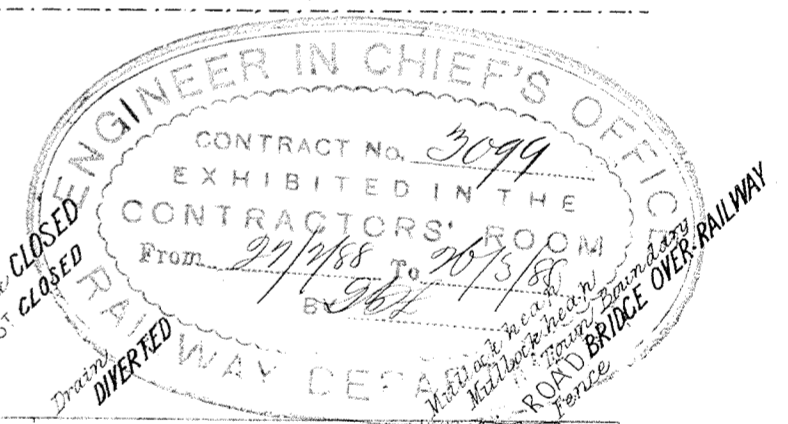 ENGINEER IN CHIEF'S OFFICE
CONTRACT No. 3099
EXHIBITED IN THE
CONTRACTORS' ROOM
From 27/2/88 To 20/3/88
By
RAILWAY DEPA
CLOSED
CLOSED
Drain
DIVERTED
Mullock heap
Mullock heap
Town Boundary
ROAD BRIDGE OVER RAILWAY
Fence